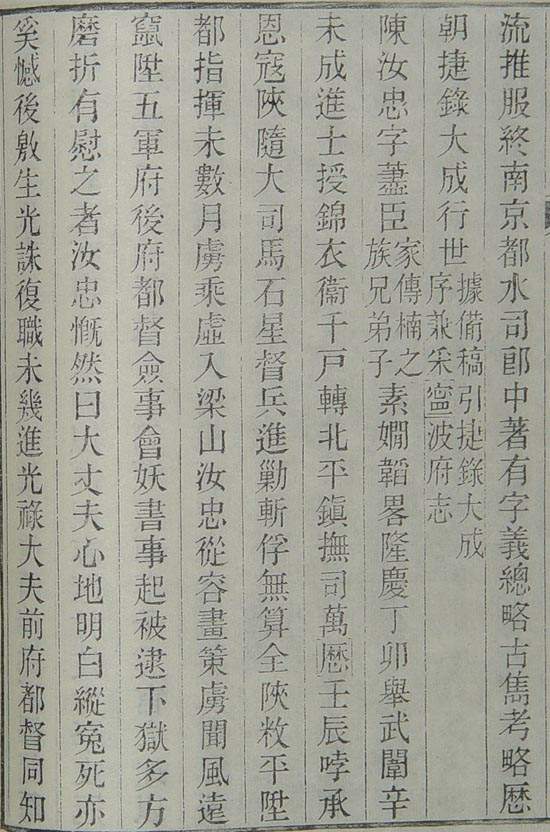 流推服終南京都水司郎中著有字義總略古雋考略歷
朝捷錄大成行世據備稿引捷錄大成序兼采寧波府志
陳汝忠字藎臣家傳楠之族兄弟子素嫺韜畧隆慶丁卯舉武闈辛
未成進士授錦衣衞千戸轉北平鎭撫司萬曆壬辰哱承
恩寇陜隨大司馬石星督兵進勦斬俘無算全陜敉平陞
都指揮未數月虜乘虛入梁山汝忠從容畫策虜聞風遠
竄陞五軍府後府都督僉事會妖書事起被逮下獄多方
磨折有慰之者汝忠慨然曰大丈夫心地明白縱寃死亦
奚憾後敫生光誅復職未幾進光祿大夫前府都督同知